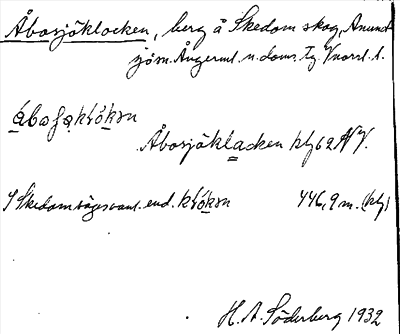 Åbosjöklocken, berg å Skedom skog, Anund-
sjö sn. Ångerml. n. doms. Tg. V nord. l.
åbosjøkłókən
Åbosjöklacken kbl 62 NV.
I Skedom säges vanl. end. kłókən 446,9 m. (kbl)
H. A. Söderberg 1932